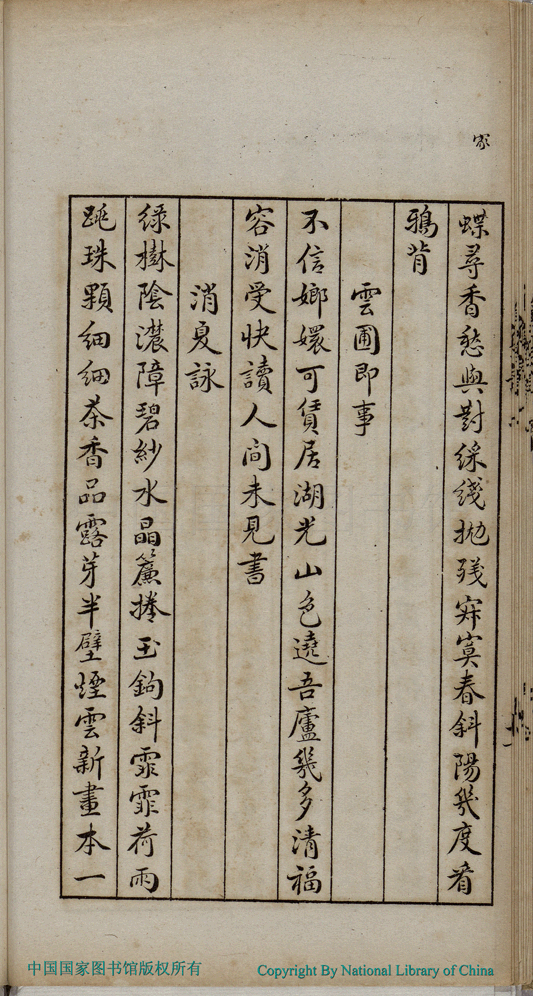 家
蝶尋香愁與對綵綫拋殘寂寞春斜陽幾度看
鴉背
雲圃即事
不信嫏嬛可賃居湖光山色遶吾廬幾多清福
容消受快讀人间未見書
消夏詠
綠樹陰濃障碧紗水晶簾捲玉鉤斜霏霏荷雨
跳珠顆細細茶香品露芽半壁煙雲新畫本一
中国国家图书馆版权所有
Copyright By National Library of China